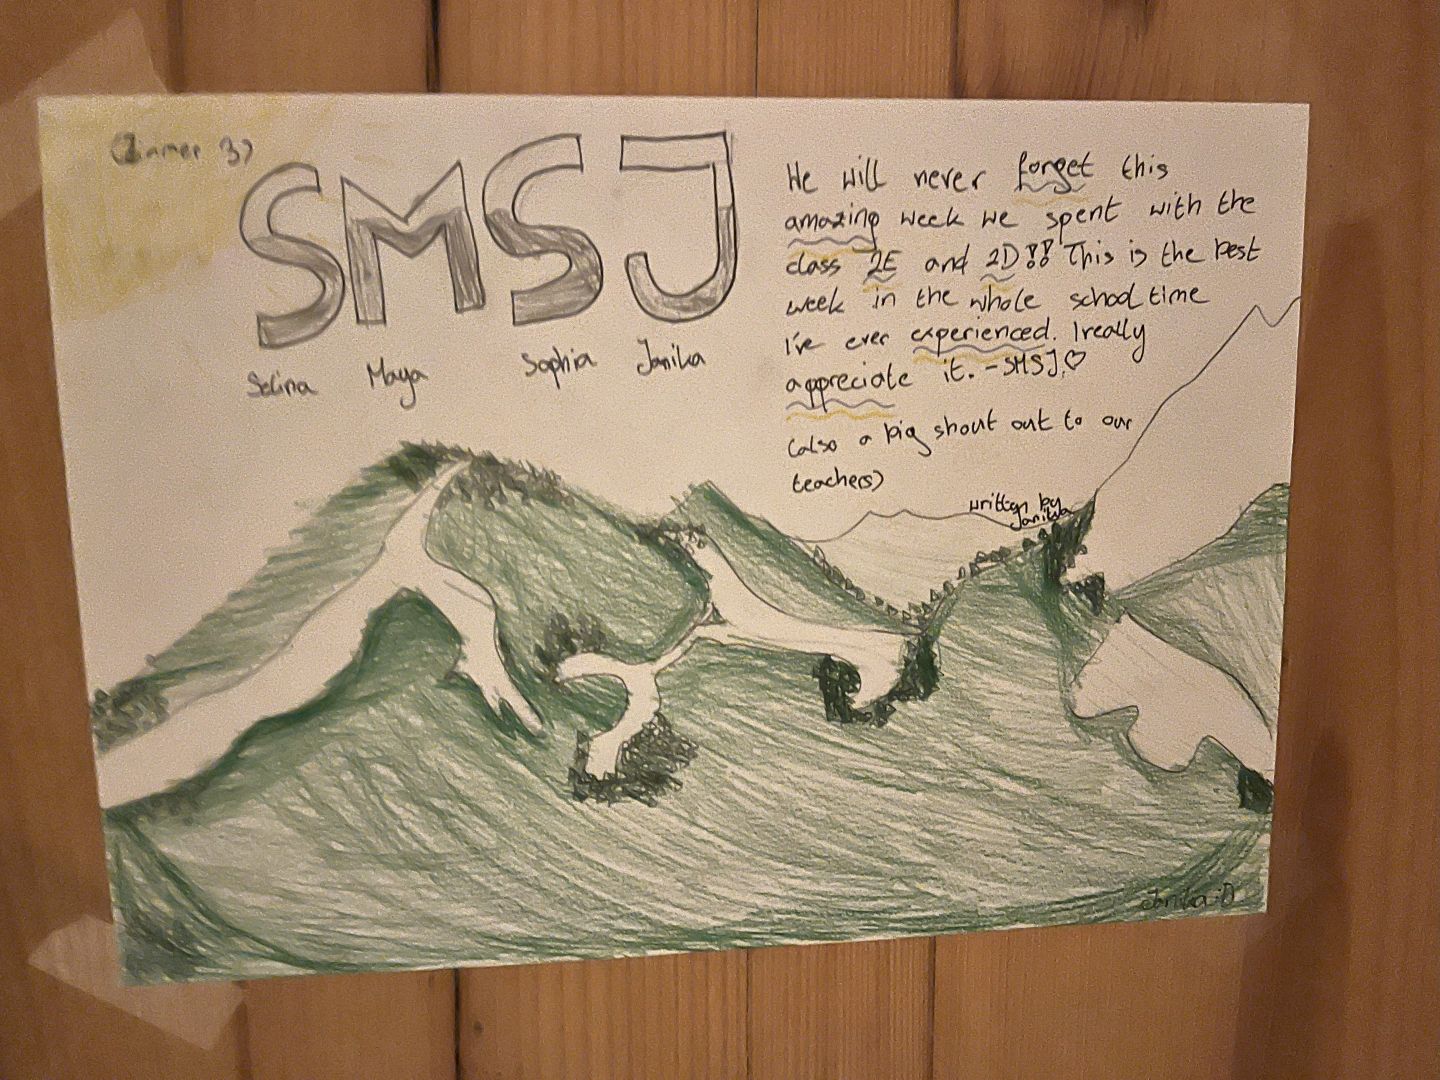 (Zimmer 3)
SMSJ
Selina Maya Sophia Janika
We will never forget this
amazing week we spent with the
class 2E and 2D!! This is the best
week in the whole school time
I've ever experienced. I really
appreciate it. - SMSJ ♡
(also a big shout out to our
teachers)
written by
Janika
Janika :D